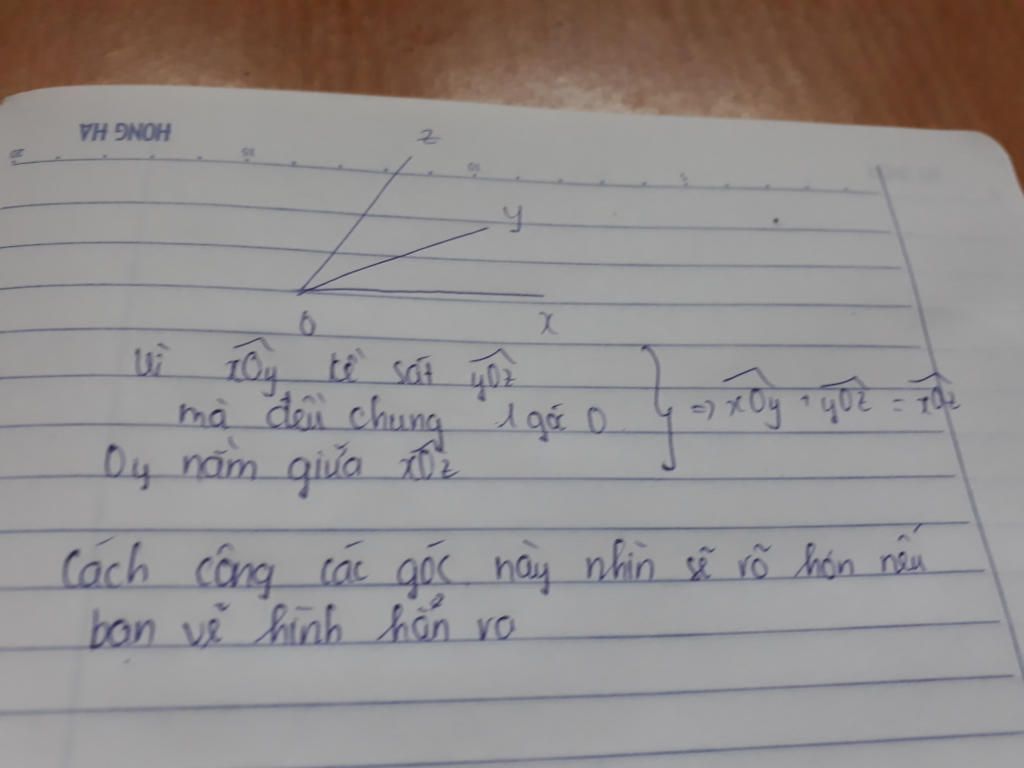 HONG HA
20 15 10 5
z
y
O x
Vì xOy kề sát yOz
mà đều chung 1 gốc O
Oy nằm giữa xOz
} => xOy + yOz = xOz
Cách công các góc này nhìn sẽ rõ hơn nếu
bạn vẽ hình hẳn ra